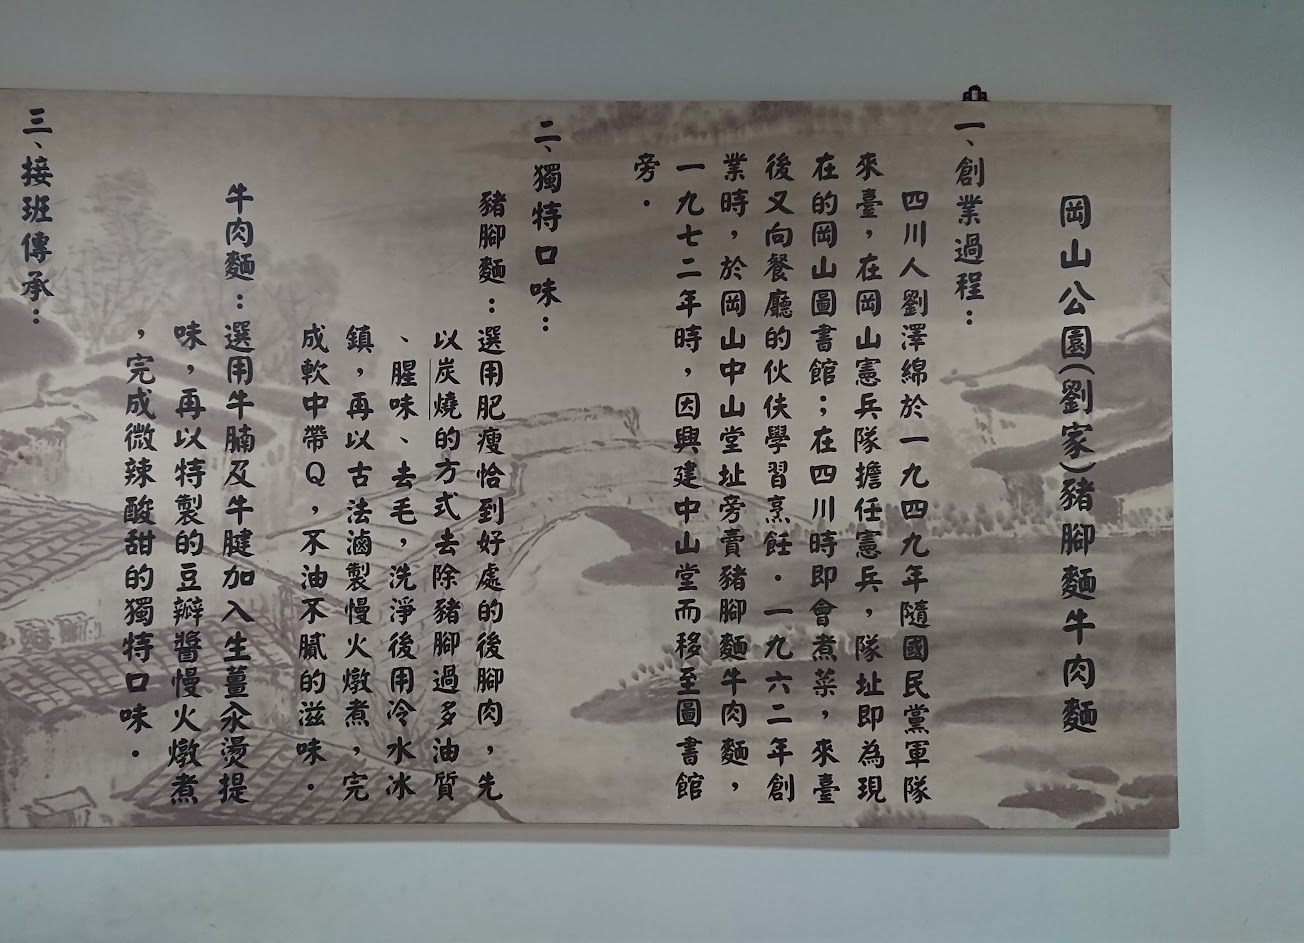 岡山公園(劉家)豬腳麵牛肉麵
一、創業過程：
四川人劉澤綿於一九四九年隨國民黨軍隊
來臺，在岡山憲兵隊擔任憲兵，隊址即為現
在的岡山圖書館；在四川時即會煮菜，來臺
後又向餐廳的伙伕學習烹飪．一九六二年創
業時，於岡山中山堂址旁賣豬腳麵牛肉麵，
一九七二年時，因興建中山堂而移至圖書館
旁．
二、獨特口味：
豬腳麵：選用肥瘦恰到好處的後腳肉，先
以炭燒的方式去除豬腳過多油質
、腥味、去毛，洗淨後用冷水冰
鎮，再以古法滷製慢火燉煮，完
成軟中帶Q，不油不膩的滋味．
牛肉麵：選用牛腩及牛腱加入生薑汆燙提
味，再以特製的豆瓣醬慢火燉煮
，完成微辣酸甜的獨特口味．
三、接班傳承：